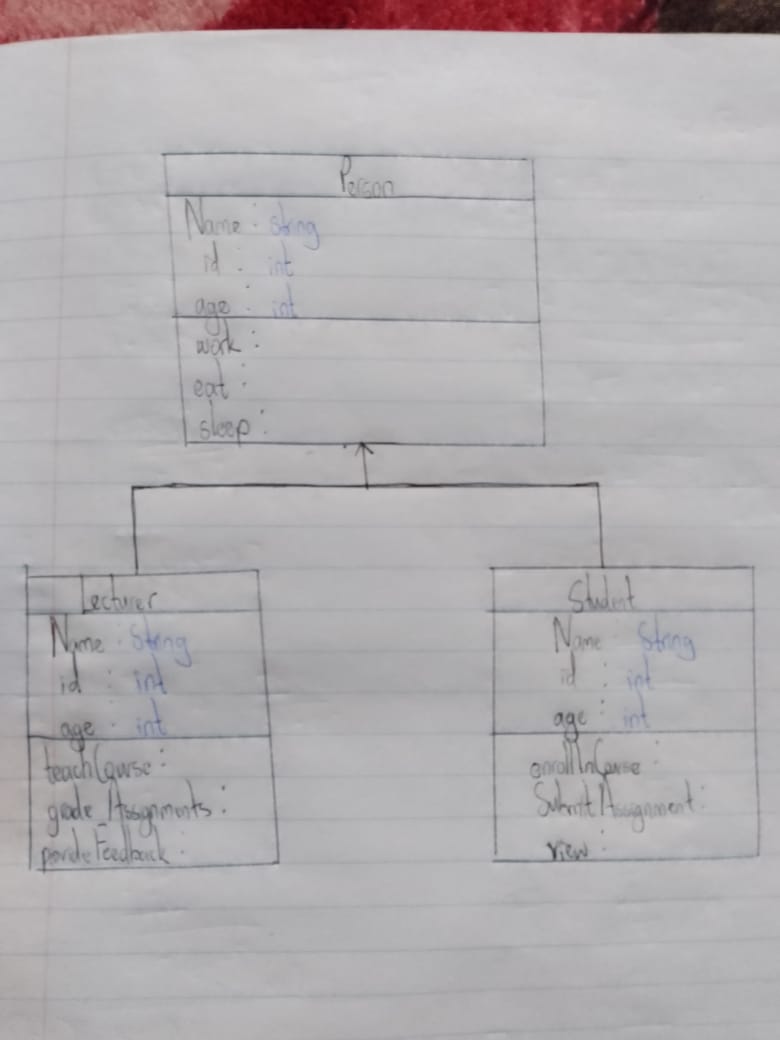 Person
Name : string
id : int
age : int
work :
eat :
sleep :
Lecturer
Name : String
id : int
age : int
teachCourse :
grade Assignments :
provideFeedback :
Student
Name : String
id : int
age : int
enrollInCourse :
Submit Assignment :
view :